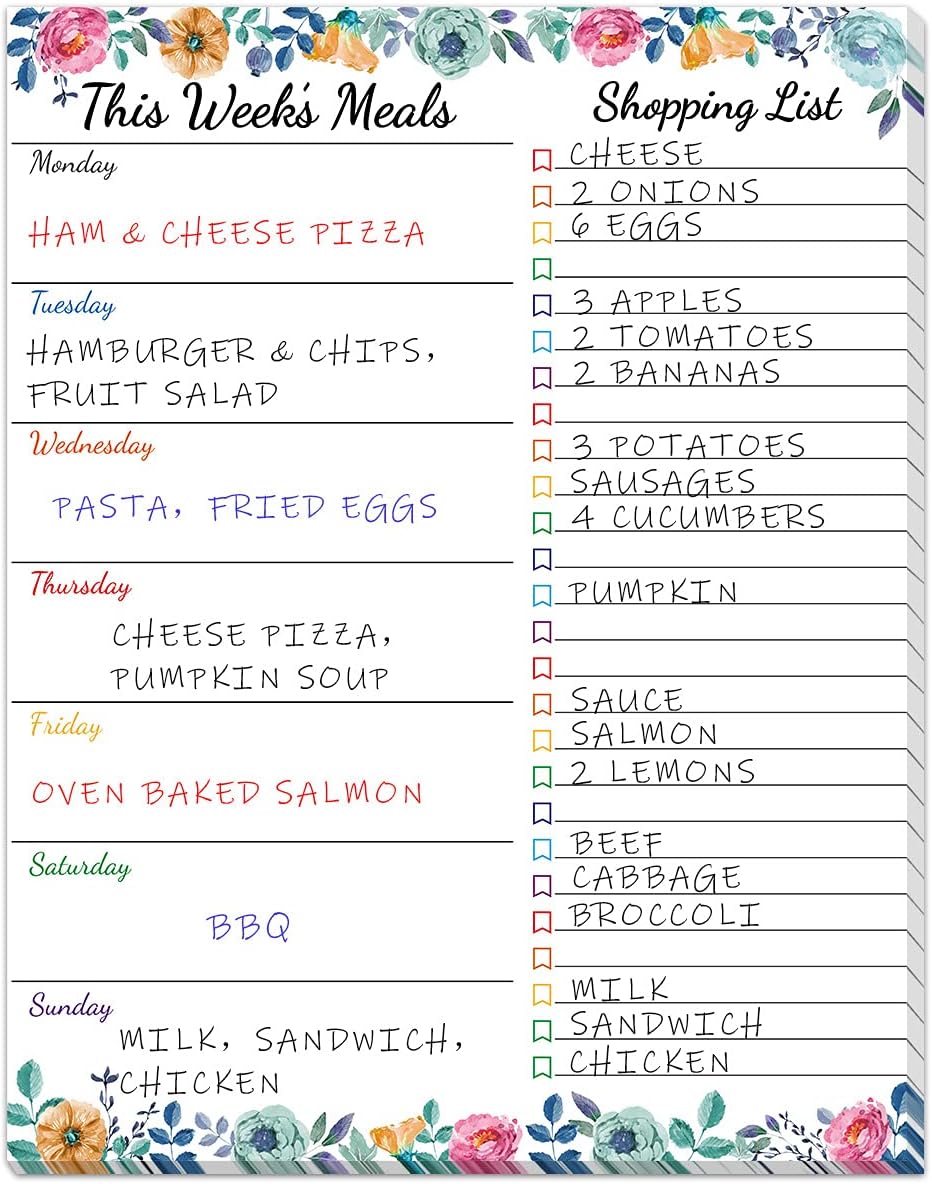 This Week's Meals
Monday
HAM & CHEESE PIZZA
Tuesday
HAMBURGER & CHIPS,
FRUIT SALAD
Wednesday
PASTA, FRIED EGGS
Thursday
CHEESE PIZZA,
PUMPKIN SOUP
Friday
OVEN BAKED SALMON
Saturday
BBQ
Sunday
MILK, SANDWICH,
CHICKEN
Shopping List
CHEESE
2 ONIONS
6 EGGS
3 APPLES
2 TOMATOES
2 BANANAS
3 POTATOES
SAUSAGES
4 CUCUMBERS
PUMPKIN
SAUCE
SALMON
2 LEMONS
BEEF
CABBAGE
BROCCOLI
MILK
SANDWICH
CHICKEN